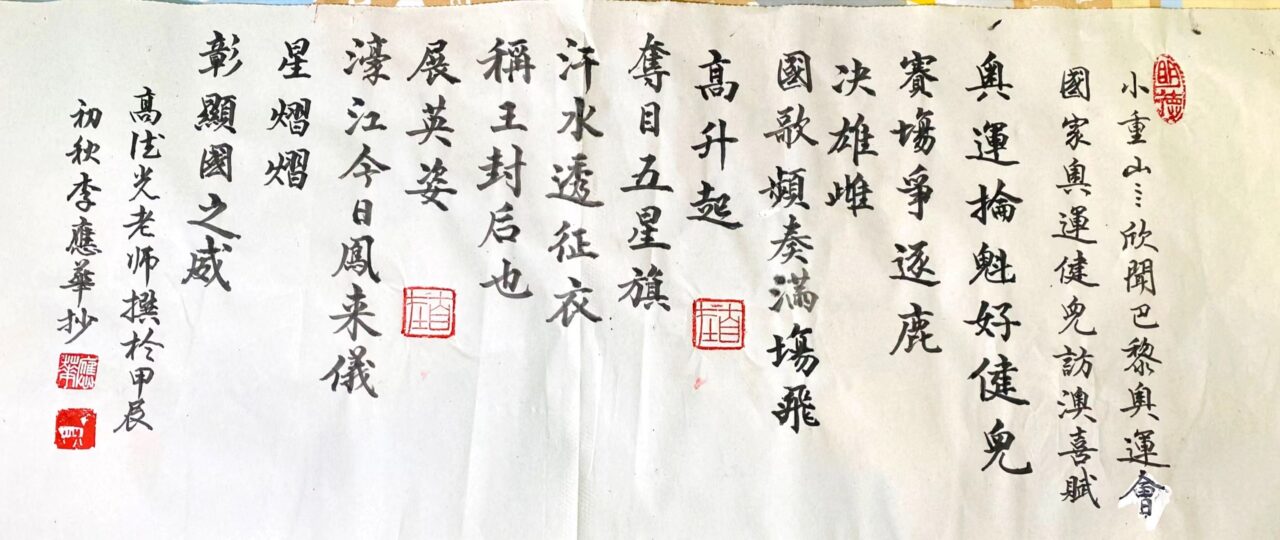 明德
小重山⋮欣聞巴黎奧運會
國家奧運健兒訪澳喜賦
奥運掄魁好健兒
賽塲爭逐鹿
决雄雌
國歌頻奏滿塲飛
高升起
奪目五星旗
汗水透征衣
稱王封后也
展英姿
濠江今日鳳来儀
星熠熠
彰顯國之威
高浤光老师撰於甲辰
初秋李應華抄
應華